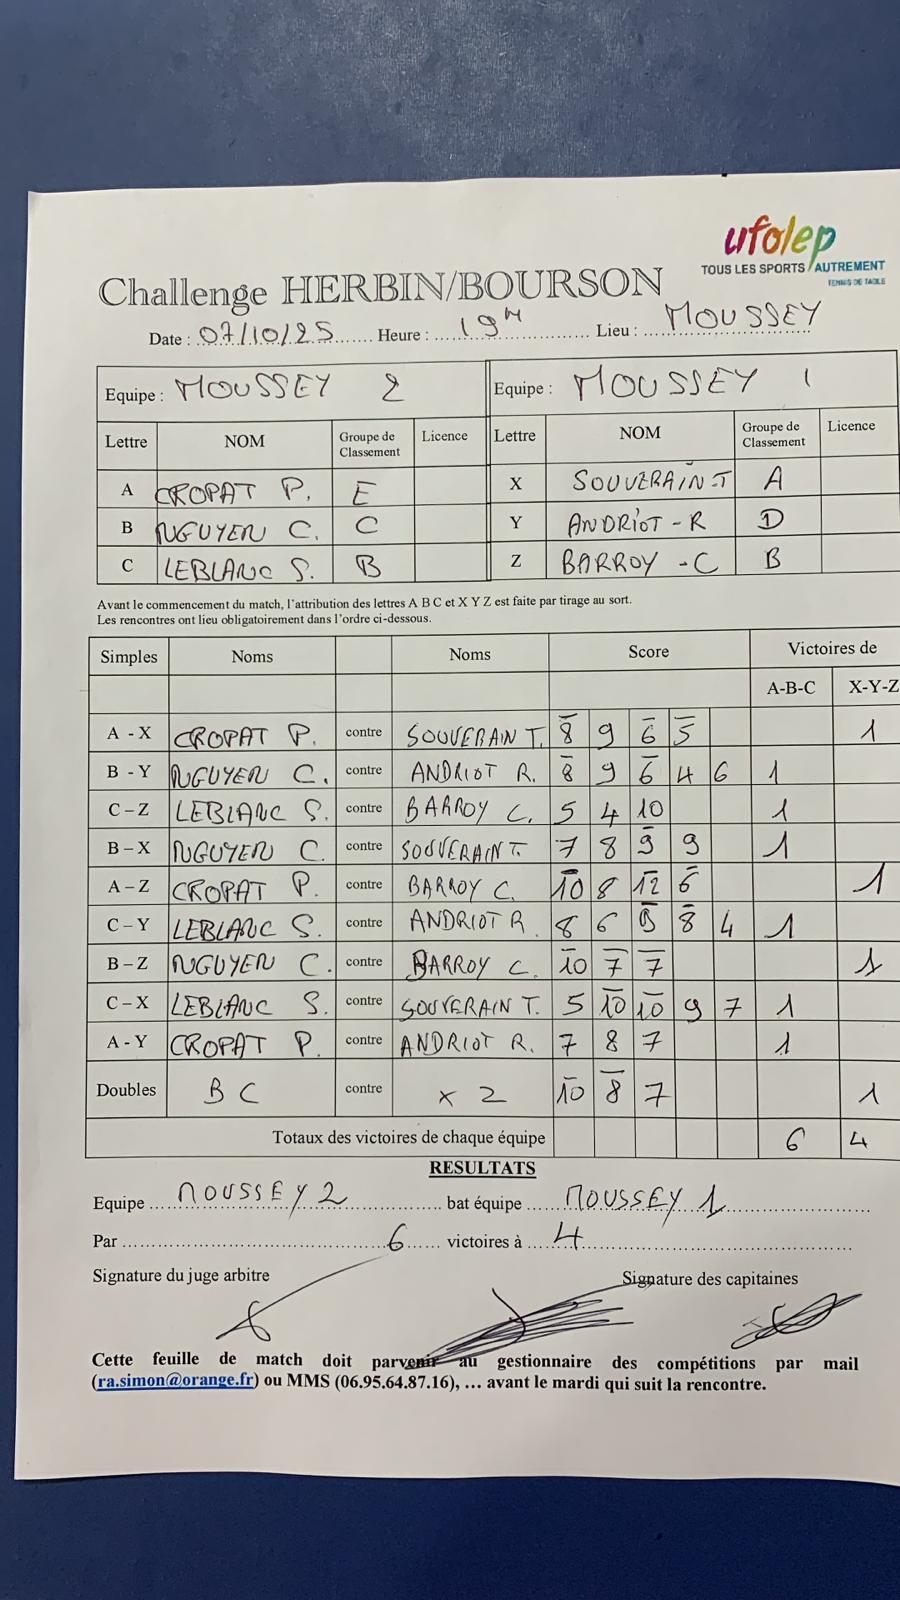 ufolep
TOUS LES SPORTS AUTREMENT
TENNIS DE TABLE
Challenge HERBIN/BOURSON
Date : 07/10/25 Heure : 19H Lieu : MOUSSEY
Equipe : MOUSSEY 2 Equipe : MOUSSEY 1
Lettre NOM Groupe de Classement Licence Lettre NOM Groupe de Classement Licence
A CROPAT P. E X SOUVERAIN T A
B NGUYEN C. C Y ANDRIOT - R D
C LEBLANC S. B Z BARROY - C B
Avant le commencement du match, l'attribution des lettres A B C et X Y Z est faite par tirage au sort.
Les rencontres ont lieu obligatoirement dans l'ordre ci-dessous.
Simples Noms Noms Score Victoires de
A-B-C X-Y-Z
A - X CROPAT P. contre SOUVERAIN T. 8̅ 9 6̅ 5̅ 1
B - Y NGUYEN C. contre ANDRIOT R. 8̅ 9 6̅ 4 6 1
C – Z LEBLANC S. contre BARROY C. 5 4 10 1
B – X NGUYEN C. contre SOUVERAIN T. 7 8 9̅ 9 1
A – Z CROPAT P. contre BARROY C. 1̅0̅ 8 1̅2̅ 6̅ 1
C – Y LEBLANC S. contre ANDRIOT R. 8 6 8̅ 4 1
B – Z NGUYEN C. contre BARROY C. 1̅0̅ 7̅ 7̅ 1
C – X LEBLANC S. contre SOUVERAIN T. 5 1̅0̅ 1̅0̅ 9 7 1
A - Y CROPAT P. contre ANDRIOT R. 7 8 7 1
Doubles B C contre X Z 1̅0̅ 8̅ 7̅ 1
Totaux des victoires de chaque équipe 6 4
RESULTATS
Equipe MOUSSEY 2 bat équipe MOUSSEY 1
Par 6 victoires à 4
Signature du juge arbitre Signature des capitaines
Cette feuille de match doit parvenir au gestionnaire des compétitions par mail
(ra.simon@orange.fr) ou MMS (06.95.64.87.16), … avant le mardi qui suit la rencontre.